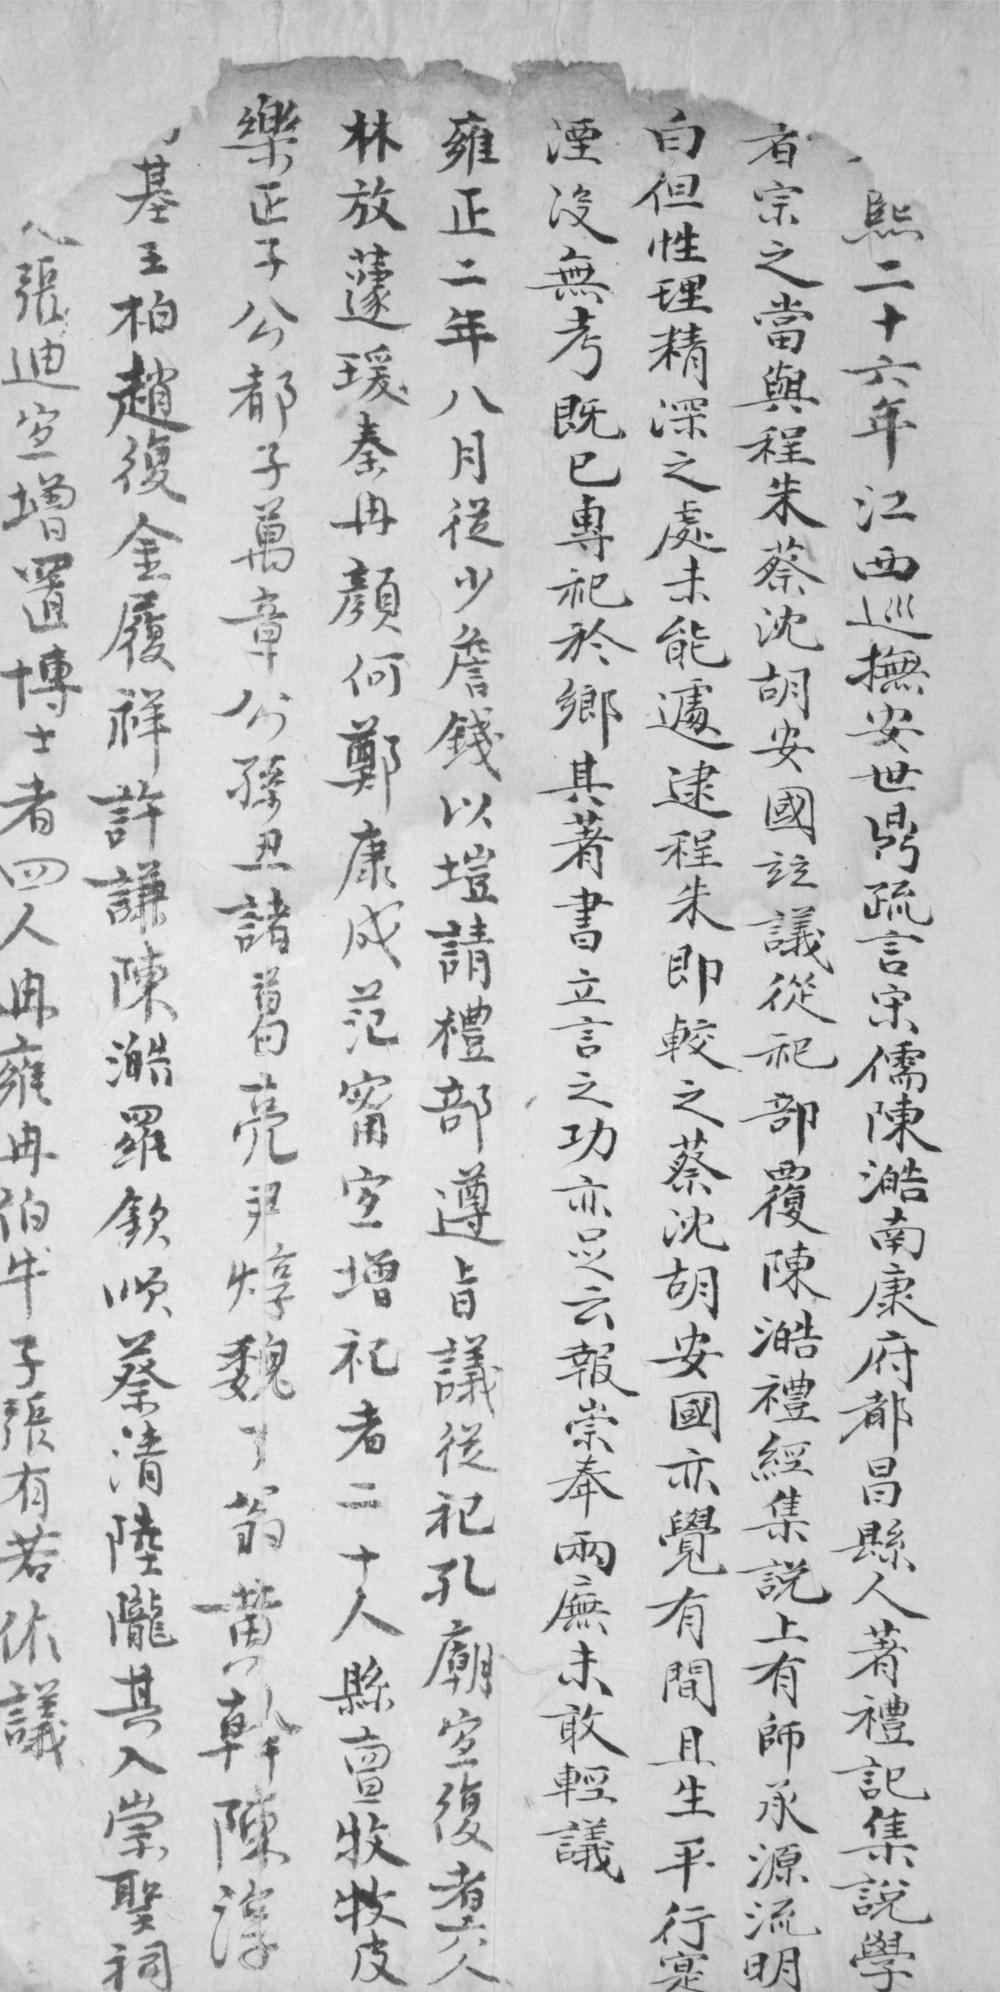 熙二十六年 江西巡撫安世鼎疏言宋儒陳澔南康府都昌縣人著禮記集說學
者宗之當與程朱蔡沈胡安國竝議從祀部覆陳澔禮經集說上有師承源流明
白但性理精深之處未能遽逮程朱即較之蔡沈胡安國亦覺有間且生平行寔
湮沒無考既已專祀於鄉其著書立言之功亦足云報崇奉兩廡未敢輕議
雍正二年八月從少詹錢以塏請禮部遵旨議從祀孔廟宜復者六人
林放蘧瑗秦冉顏何鄭康成范甯宜增祀者二十人縣亶牧牧皮
樂正子公都子萬章公孫丑諸葛亮尹焞魏了翁黃幹陳淳
基王柏趙復金履祥許謙陳澔羅欽順蔡清陸隴其入崇聖祠
張迪宜增置博士者四人冉雍冉伯牛子張有若依議